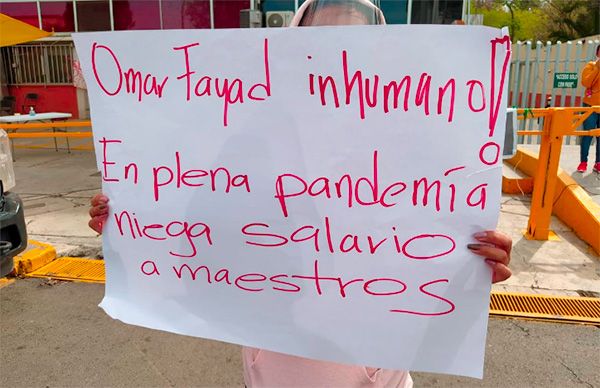 Omar Fayad inhumano!
En plena pandemía
niega salario
a maestros
ACCESO SOLO
CON PASE